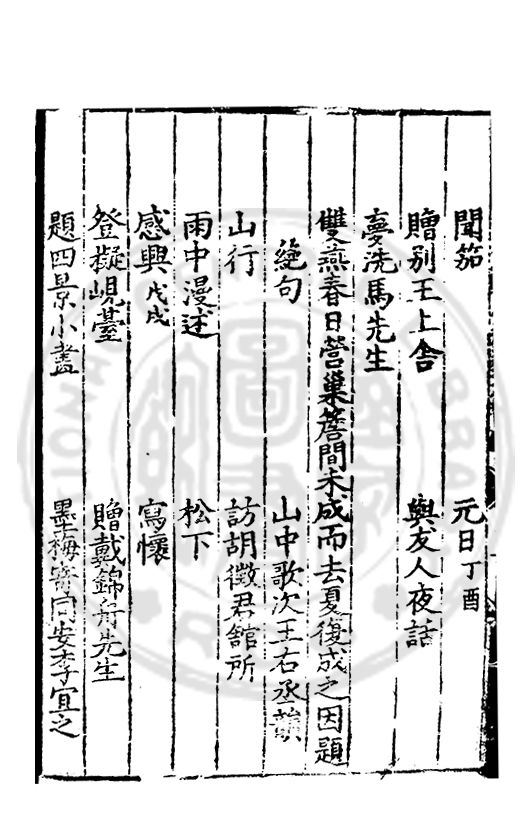 聞笳　元日丁酉
贈別王上舍　與友人夜話
夢洗馬先生
雙燕春日營巢簷間未成而去夏復成之因題
絕句　山中歌次王右丞韻
山行　訪胡徵君館所
雨中漫述　松下
感興戊戌　寫懷
登擬峴臺　贈戴錦舟先生
題四景小畫　墨梅寄同安李宜之